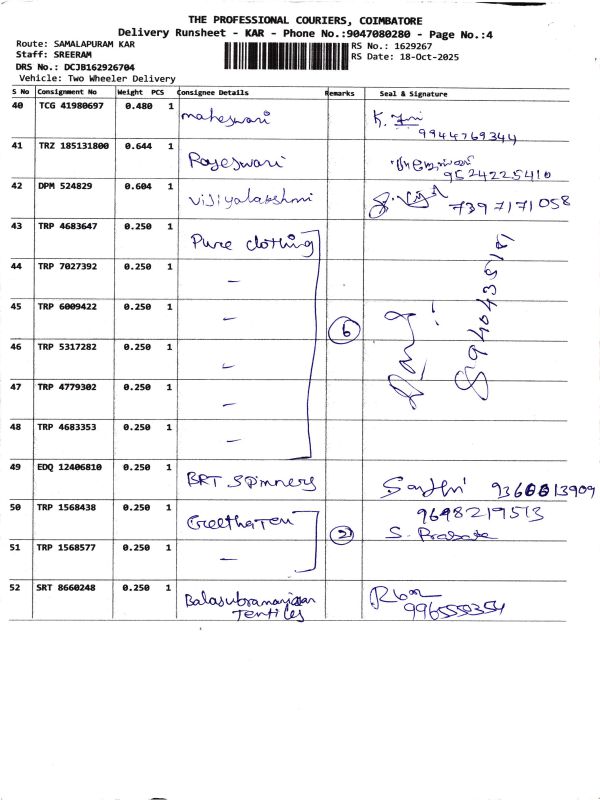 THE PROFESSIONAL COURIERS, COIMBATORE
Delivery Runsheet - KAR - Phone No.:9047080280 - Page No.:4
Route: SAMALAPURAM KAR
RS No.: 1629267
Staff: SREERAM
RS Date: 18-Oct-2025
DRS No.: DCJB162926704
Vehicle: Two Wheeler Delivery
S No Consignment No Weight PCS Consignee Details Remarks Seal & Signature
40 TCG 41980697 0.480 1 maheswari K.
9944769344
41 TRZ 185131800 0.644 1 Rajeswari
9524225410
42 DPM 524829 0.604 1 Vijiyalakshmi
7397171058
43 TRP 4683647 0.250 1 Pure clothing
44 TRP 7027392 0.250 1 —
45 TRP 6009422 0.250 1 —
6
46 TRP 5317282 0.250 1 —
47 TRP 4779302 0.250 1 —
48 TRP 4683353 0.250 1 —
49 EDQ 12406810 0.250 1 BRT Spinners 9360013909
50 TRP 1568438 0.250 1 9698219513
2 S.
51 TRP 1568577 0.250 1 —
52 SRT 8660248 0.250 1 Balasubramaniyan
Tentiles